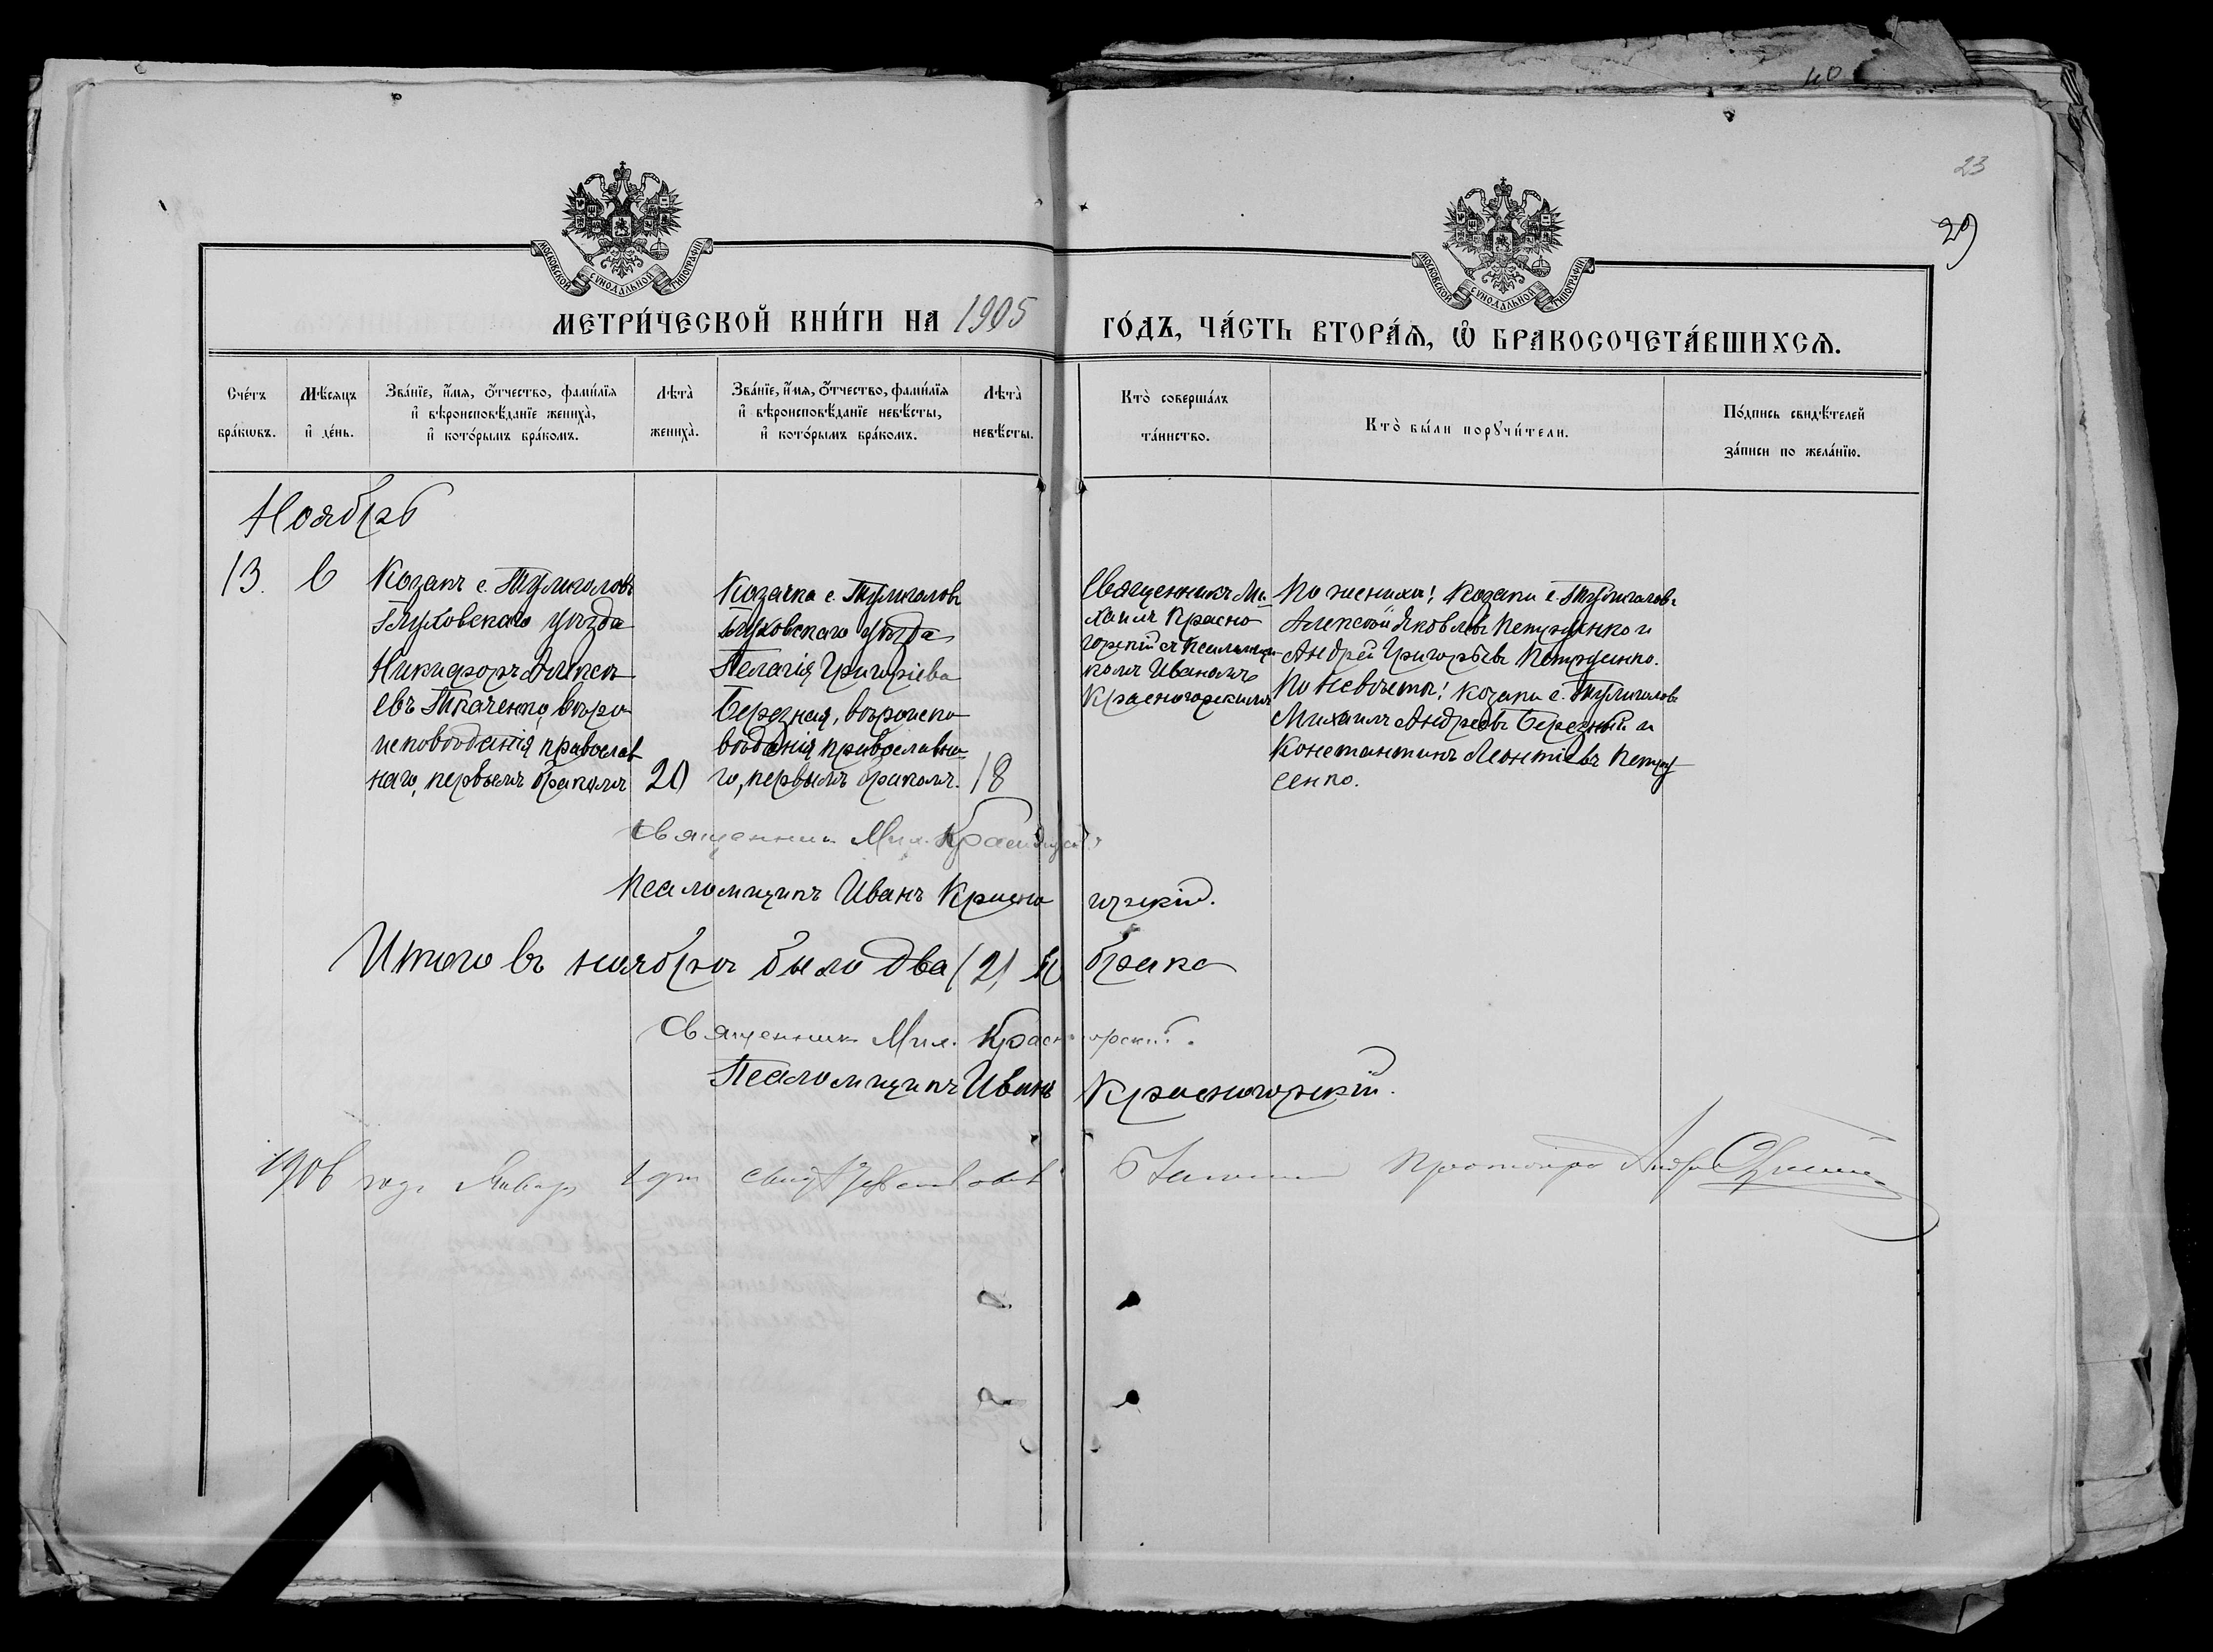 40
23
29
МОСКОВСКОЙ СУНОДАЛЬНОЙ ТИПОГРАФІИ
МОСКОВСКОЙ СУНОДАЛЬНОЙ ТИПОГРАФІИ
МЕТРИ́ЧЕСКОЙ КНИ́ГИ НА 1905 ГО́ДЪ, ЧА́СТЬ ВТОРА́Ѧ, Ѽ БРАКОСОЧЕТА́ВШИХСѦ.
Сче́тъ
бра́ковъ.
Мѣ́сяцъ
и҆ де́нь.
Зва́нїе, и҆́мѧ, ѻ҆́тчество, фами́лїѧ
и҆ вѣроисповѣ́данїе жениха̀,
и҆ кото́рымъ бра́комъ.
Лѣта̀
жениха̀.
Зва́нїе, и҆́мѧ, ѻ҆́тчество, фами́лїѧ
и҆ вѣроисповѣ́данїе невѣ́сты,
и҆ кото́рымъ бра́комъ.
Лѣта̀
невѣ́сты.
Кто̀ соверша́лъ
та́инство.
Кто̀ бы́ли порꙋчи́тели.
По́дпись свидѣ́телей
за́писи по жела́нїю.
Ноябрь
13.
6
Козакъ с. Тулиголовъ
Глуховскаго уѣзда
Никифоръ Алексѣ
евъ Ткаченко, вѣро
исповѣданія православ
наго, первымъ бракомъ
20
Козачка с. Тулиголовъ
Глуховскаго уѣзда
Пелагія Григоріева
Березная, вѣроиспо
вѣданія православна
го, первымъ бракомъ.
18
Священникъ Ми
хаилъ Красно
горскій съ псаломщи
комъ Иваномъ
Красногорскимъ
По женихѣ: козаки с. Тулиголовъ
Алексѣй Яковлевъ Петрусенко и
Андрей Григорьевъ Петрусенко.
По невѣстѣ: козаки с. Тулиголовъ
Михаилъ Андреевъ Березный и
Константинъ Леонтіевъ Петру
сенко.
Священникъ Мих. Красногорскій
Псаломщикъ Иванъ Красногорскій.
Итого въ ноябрѣ было два (2) брака
Священникъ Мих. Красногорскій.
Псаломщикъ Иванъ Красногорскій.
1906 года Января дня